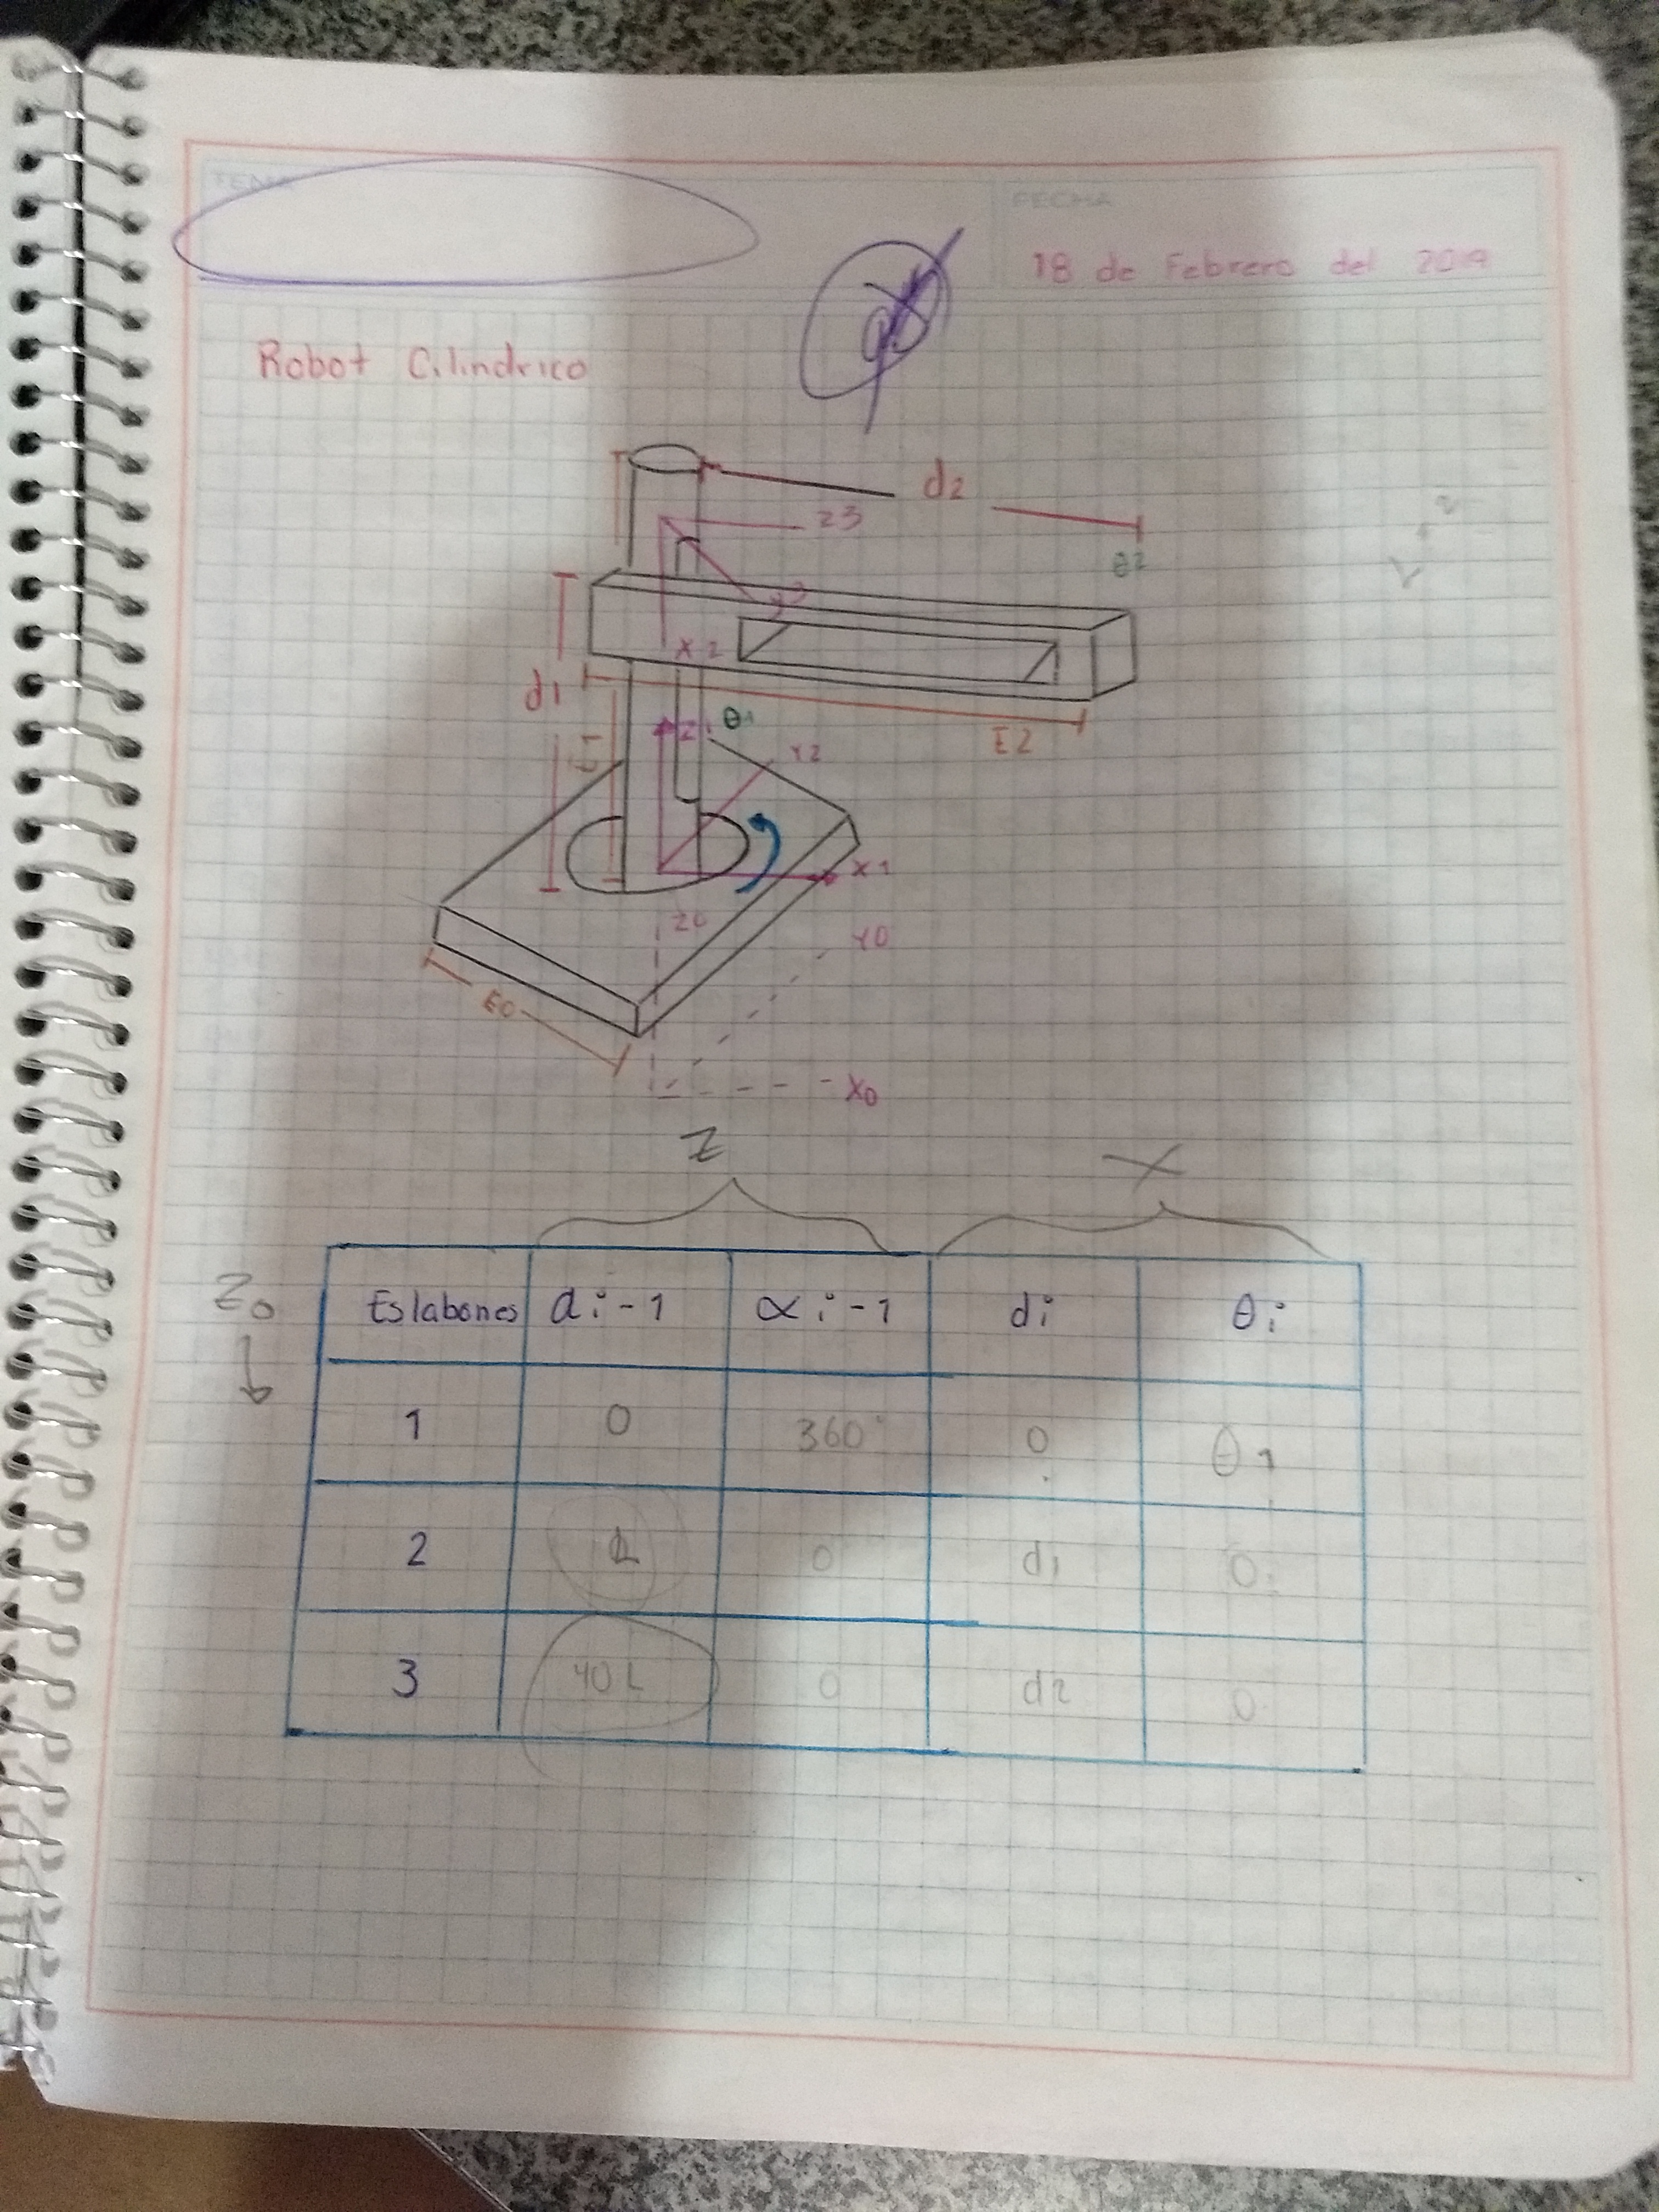 TEMA
FECHA
18 de Febrero del 2019
Robot Cilindrico
d2
z3
θ2
X2
d1
Z1
θ1
E1
E2
Y2
X1
Z0
Y0
E0
X0
Z
X
Z0
Eslabones ai-1 αi-1 di θi
1 0 360° 0 θ1
2 L 0 d1 0
3 40L 0 d2 0